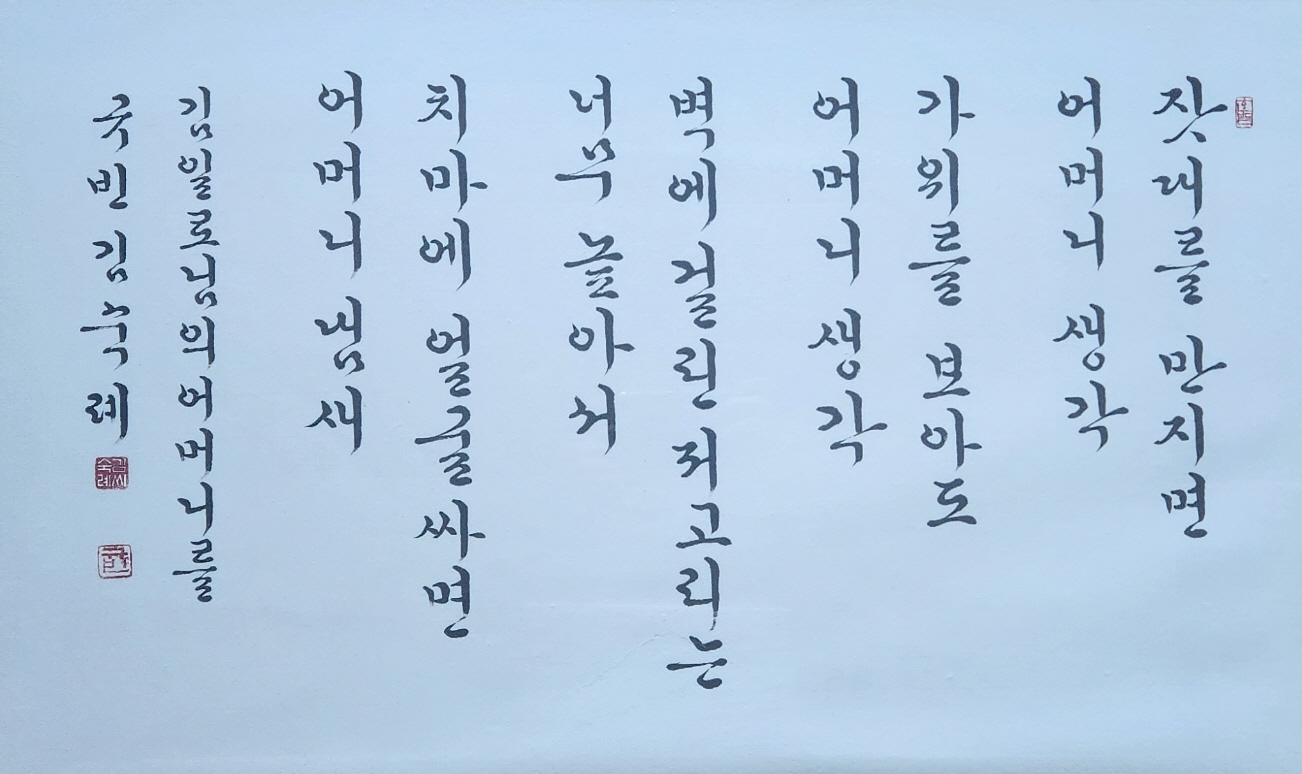 잣대를 만지면
어머니 생각
가위를 보아도
어머니 생각
벽에 걸린 저고리는
너무 높아서
치마에 얼굴 싸면
어머니 냄새
김일로님의 어머니를
국빈 김숙례
김씨숙례